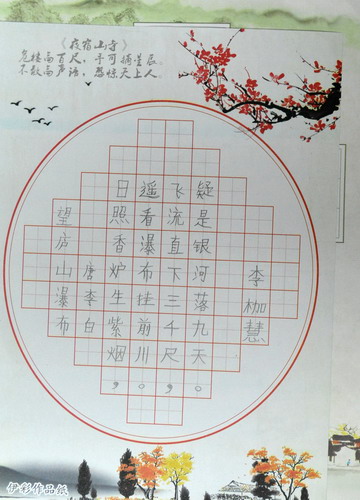 《夜宿山寺》
危楼高百尺，手可摘星辰。
不敢高声语，恐惊天上人。
望庐山瀑布
唐李白
日照香炉生紫烟，
遥看瀑布挂前川。
飞流直下三千尺，
疑是银河落九天。
李枷慧
伊彩作品纸